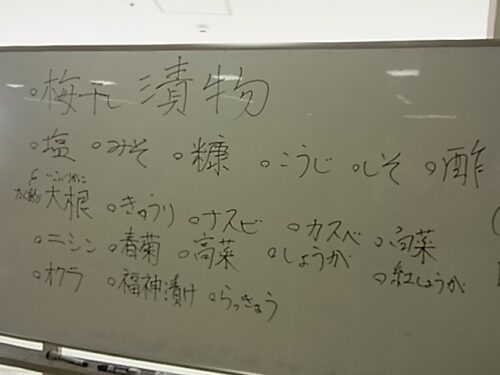 。梅干し 漬物
。塩 。みそ 。糠 。こうじ 。しそ 。酢
大根 。きゅうり 。ナスビ 。カスベ 。白菜
。ニシン 。春菊 。高菜 。しょうが 。紅しょうが
。オクラ 。福神漬け 。らっきょう